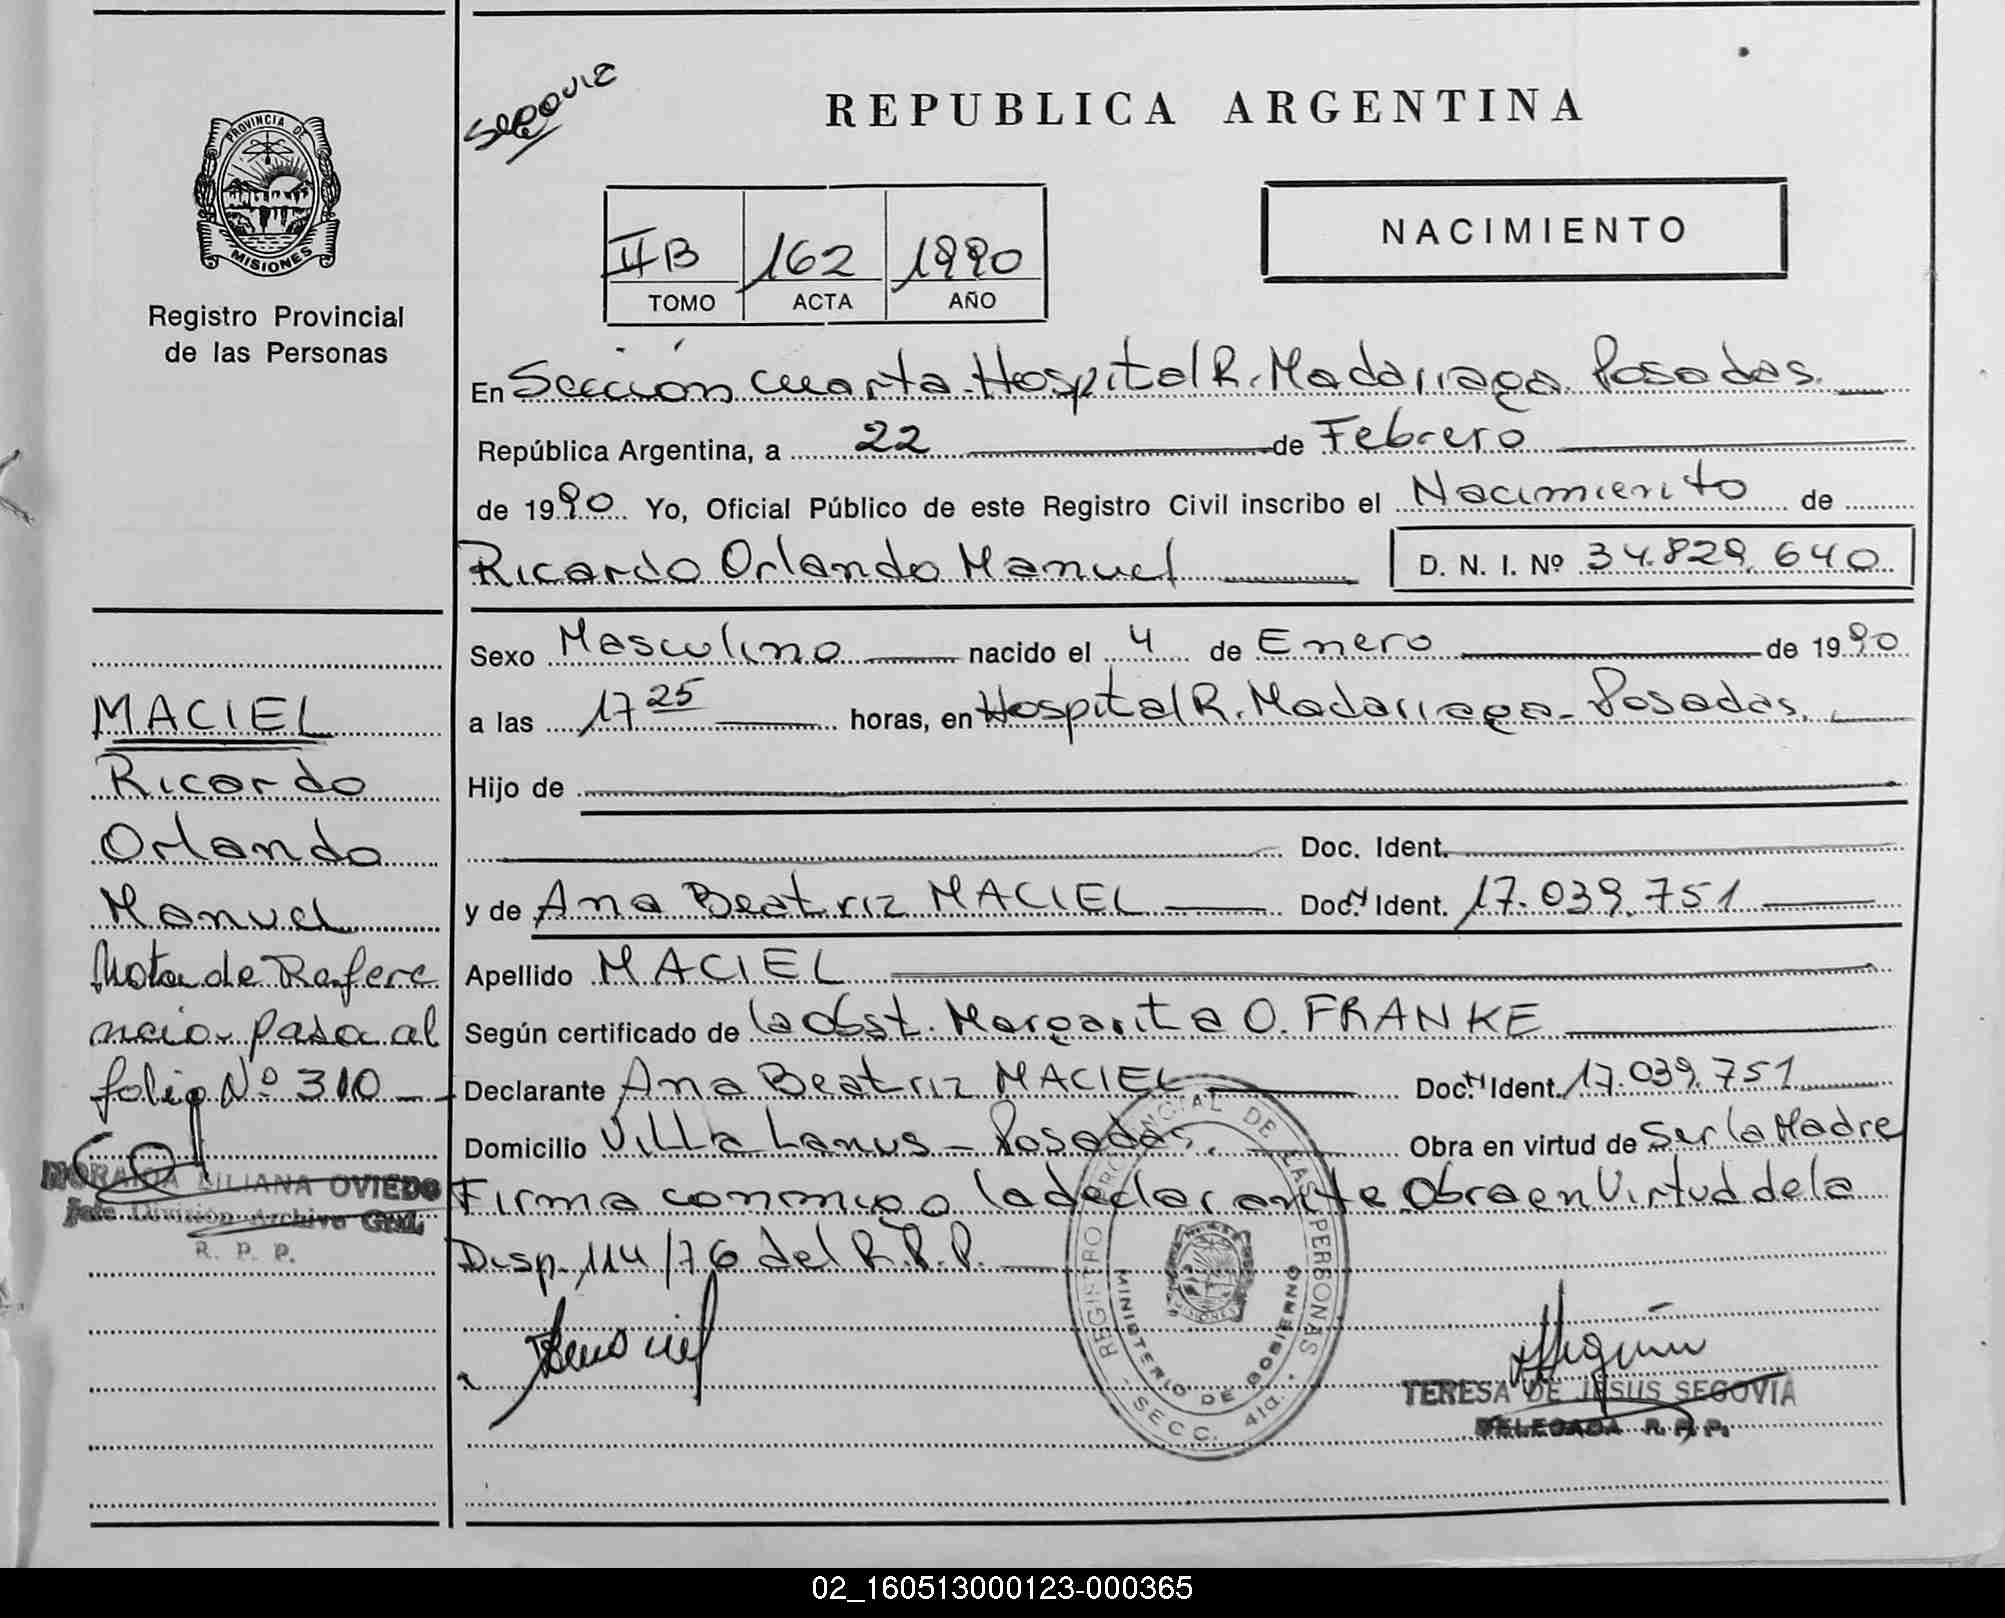 PROVINCIA DE
MISIONES
Registro Provincial
de las Personas
REPUBLICA ARGENTINA
NACIMIENTO
II B 162 1990
TOMO ACTA AÑO
En Sección cuarta Hospital R. Madariaga Posadas.
República Argentina, a 22 de Febrero
de 1990 Yo, Oficial Público de este Registro Civil inscribo el Nacimiento de
Ricardo Orlando Manuel D. N. I. Nº 34.829.640
Sexo Masculino nacido el 4 de Enero de 1990
a las 17 25 horas, en Hospital R. Madariaga - Posadas.
Hijo de
Doc. Ident.
y de Ana Beatriz MACIEL Doc. Ident. 17.039.751
Apellido MACIEL
Según certificado de la Obst. Margarita O. FRANKE
Declarante Ana Beatriz MACIEL Doc. Ident. 17.039.751
Domicilio Villa Lanus - Posadas. Obra en virtud de Ser la Madre
Firma conmigo la declarante Obra en Virtud de la
Disp. 114/76 del R.P.P.
MACIEL
Ricardo
Orlando
Manuel
Nota de Refere
ncia pasa al
folio Nº 310
LILIANA OVIEDO
Jefe División Archivo Gral.
R. P. P.
REGISTRO PROVINCIAL DE LAS PERSONAS
MINISTERIO DE GOBIERNO
SECC. 4ta.
TERESA DE JESUS SEGOVIA
DELEGADA R. P. P.
02_160513000123-000365